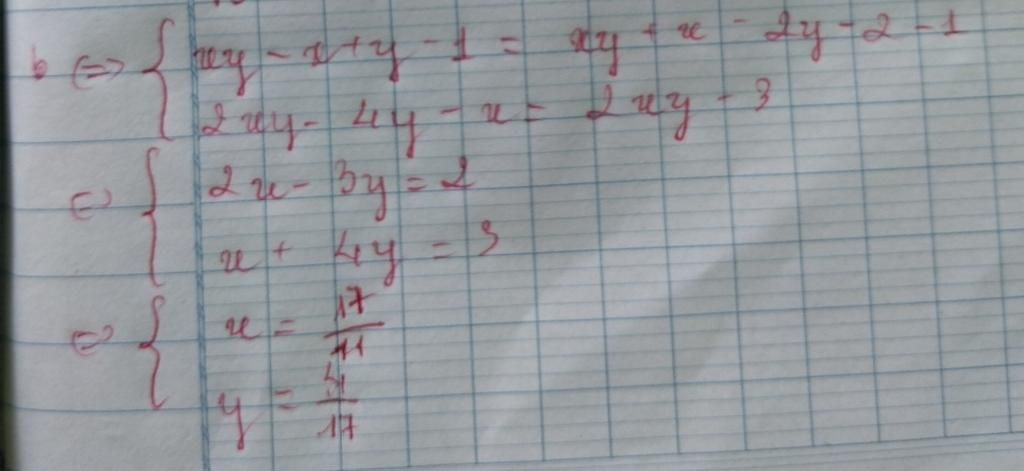 b ⇔ { xy - x + y - 1 = xy + x - 2y - 2 - 1
2xy - 4y - x = 2xy - 3
⇔ { 2x - 3y = 2
x + 4y = 3
⇔ { x = 17/11
y = 4/17